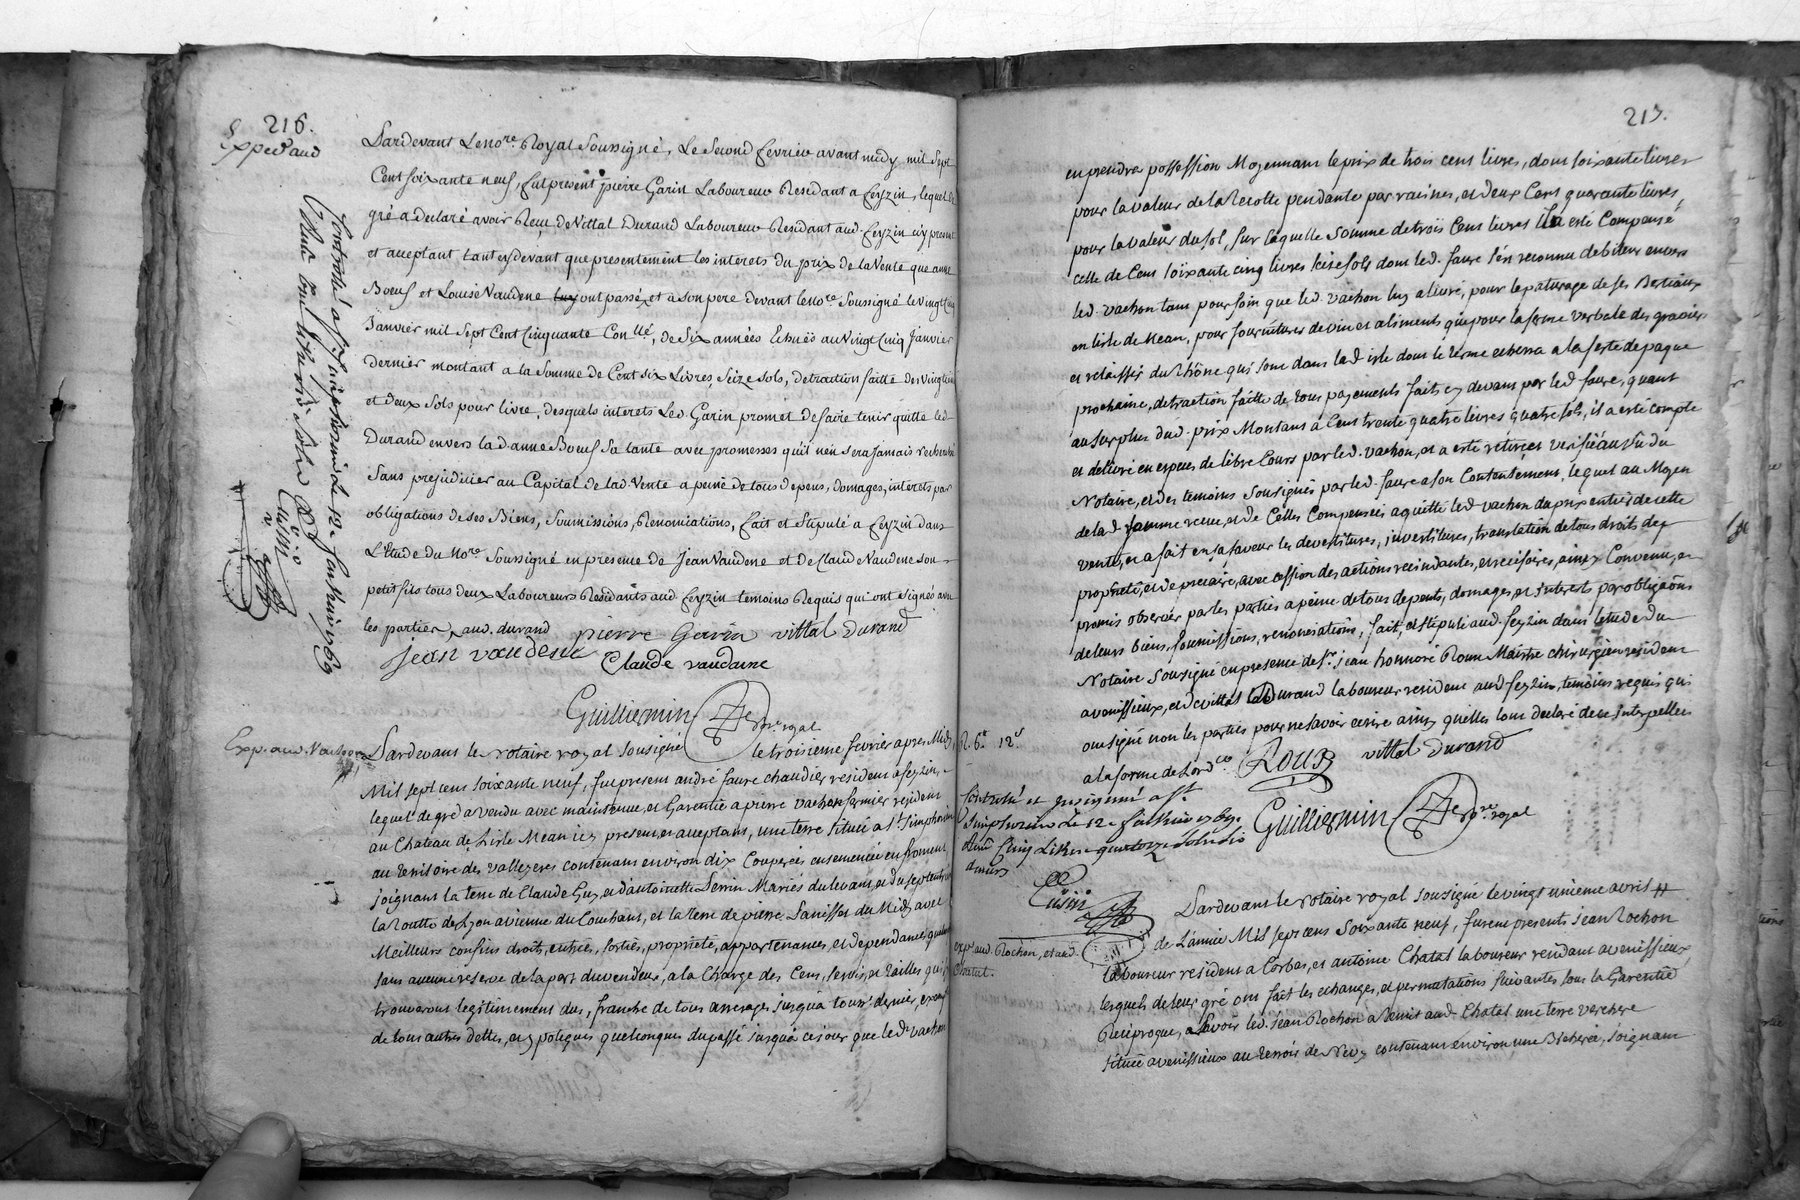 216.
Expedᵉ aud
Pardevant Le noʳᵉ Royal Soussigné, Le Second fevrier avant midy mil Sept
Cent soixante neuf, fut present pierre Garin Laboureur Residant a feyzin, lequel de
gré a declaré avoir Reçu de Vittal Durand Laboureur Residant aud. feyzin icy present
et acceptant tant cy devant que presentement les interets du prix de la Vente que anne
Boeuf et Louise Vaudene luy ont passé, et a son pere devant le noʳᵉ Soussigné le vingt cinq
Janvier mil Sept Cent Cinquante Conˡˡᵉ, de Six années Echues au Vingt Cinq Janvier
dernier montant a la Somme de Cent six Livres Seize Sols, detraction faitte des vingtiemes
et deux Sols pour livre, desquels interets Led Garin promet de faire tenir quitte led.
Durand envers lad anne Boeuf Sa tante avec promesses qu'il n'en sera jamais recherché
Sans prejudicier au Capital de lad Vente a peine de tous depens, domages, interets par
obligations de ses Biens, Soumissions, Renonciations, fait et Stipulé a feyzin dans
L'Etude du Noʳᵉ Soussigné en presence de Jean Vaudene et de Claude Vaudene son
petit fils tous deux Laboureurs Residants aud feyzin temoins Requis qui ont signé avec
les parties, aud. durand
pierre Garin vittal durand
Jean vaudene Claude vaudene
Guilliermin noʳᵉ royal
Controllé a Sᵗ Simphorien le 12ᵉ fevrier 1769
Cusin
Exp. aud Vachon
Pardevant le notaire royal sousigné le troisieme fevrier apres Midy
Mil sept cens soixante neuf, fut present andré faure chandier resident a feyzin,
lequel de gré a vendu avec maintenue, et Garentie a pierre vachon fermier resident
au Chateau de Lisle Mean icy present et acceptant, une terre située a Sᵗ Simphorien
au territoire des vallezeres contenant environ dix Couperées ensemencée en froment
joignant la terre de Claude Guy, et d'antoinette Perrin Mariés du levant, et du septentrion
la Routte de Lyon a vienne du Couchant, et la terre de pierre Sanisson du Midy avec
Meilleurs confins droits, entrées, sorties, proprieté, appartenances, et dependances quelconques
sans aucune reserve de la part du vendeur, a la Charge des Cens, servis, et tailles qui se
trouveront legitimement dus, franche de tous arrerages jusqu'a tout denier, exempte
de tous autres dettes, et ypoteques quelconques du passé jusqu'a ce jour que led vachon
217.
en prendra possession Moyennant le prix de trois cent livres, dont soixante livres
pour la valeur de la Recolte pendante par racines, et deux Cens quarante livres
pour la valeur du sol, sur laquelle Somme de trois Cens livres il a esté Compensé
celle de Cent soixante cinq livres seize sols dont led. faure s'est reconnu debiteur envers
led. vachon tant pour foin que led. vachon luy a livré, pour le paturage de ses Bestiaux
en lisle de Mean, pour fournitures de vin et aliments que pour la ferme verbale des graviers
et relaissés du Rhône qui sont dans lad isle dont le terme echerra a la feste de paque
prochaine, detraction faitte de tous payements faits cy devant par led faure, quant
au surplus dud. prix Montant a Cent trente quatre livres quatre sols, il a esté compté
et delivré en especes de libre Cours par led. vachon, et a esté retirées verifié au vû du
Notaire, et des temoins sousignés par led. faure a son Contentement, lequel au Moyen
de lad somme recue, et de Celles Compensées a quitté led vachon du prix entier de cette
vente, et a fait en sa faveur les devestitures, investitures, translation de tous droits de
proprieté, et de precaire, avec cession des actions recindantes, et recisoires, ainsy Convenu, et
promis observer par les parties a peine de tous depents, domages, et interests par obligations
de leurs biens, soumissions, renonciations, fait, et stipulé aud. feyzin dans letude du
Notaire sousigné en presence de Sʳ. jean honnoré Roux Maistre chirurgien resident
a venissieux, et de vittal Durand laboureur resident aud feyzin, temoins requis qui
ont signé non les parties pour ne savoir ecrire ainsy quelles l'ont declaré de ce interpellées
a la forme de Lordᶜᵉ Roux vittal durand
Guilliermin noʳᵉ royal
R. 6ᵗ 12ˢ
Controllé et insinué a Sᵗ.
Simphorien le 12ᵉ fevrier 1769.
Cusin
exp. aud. Rochon, et aud.
Chatat.
Pardevant le notaire royal sousigné le vingt unieme avril
de L'année Mil sept cens soixante neuf, furent presents jean Rochon
laboureur resident a Corbas, et antoine Chatat laboureur residant a venissieux,
lesquels de leur gré ont fait les echanges, et permutations suivantes sous la Garentie
Reciproque, a Savoir led. jean Rochon a Remis aud Chatat une terre verchere
située a venissieux au terroir de contenant environ une Bicherée, joignant